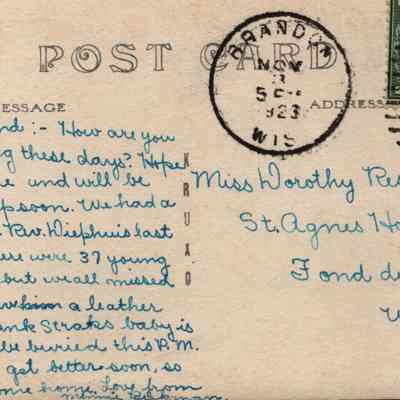 POST CARD
BRANDON
NOV
3
5 P
1923
WIS
ESSAGE
ADDRESS
KRUXO
nd :- How are you
g these days? Hope
e and will be
p soon. We had a
. Rev. Wiephuis last
ere were 37 young
but we all missed
a leather
ank Straks baby is
be buried this P.M.
get better soon, so
ome home. Love from
Minnie
Miss Dorothy Re
St. Agnes Ho
Fond d